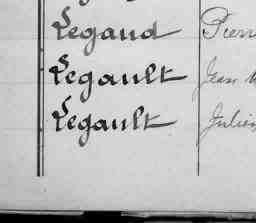 Legaud Pierr
Legault Jean
Legault Julien